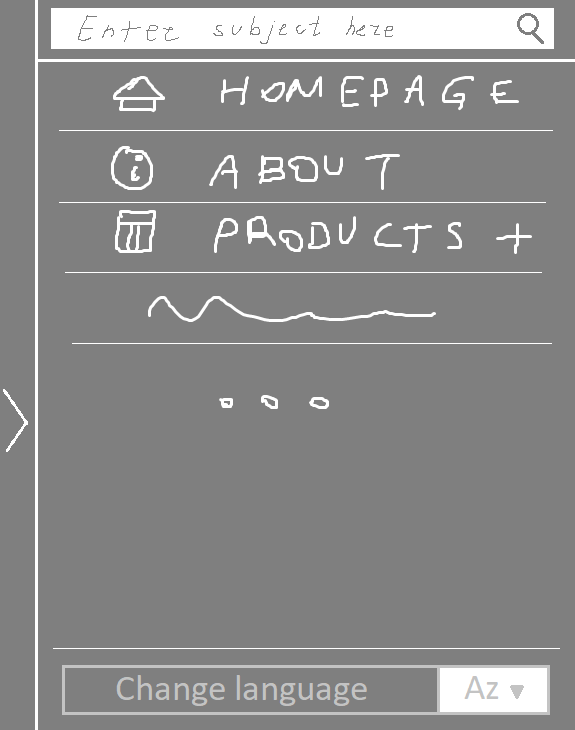 Enter subject here
HOMEPAGE
i ABOUT
PRODUCTS +
Change language Az